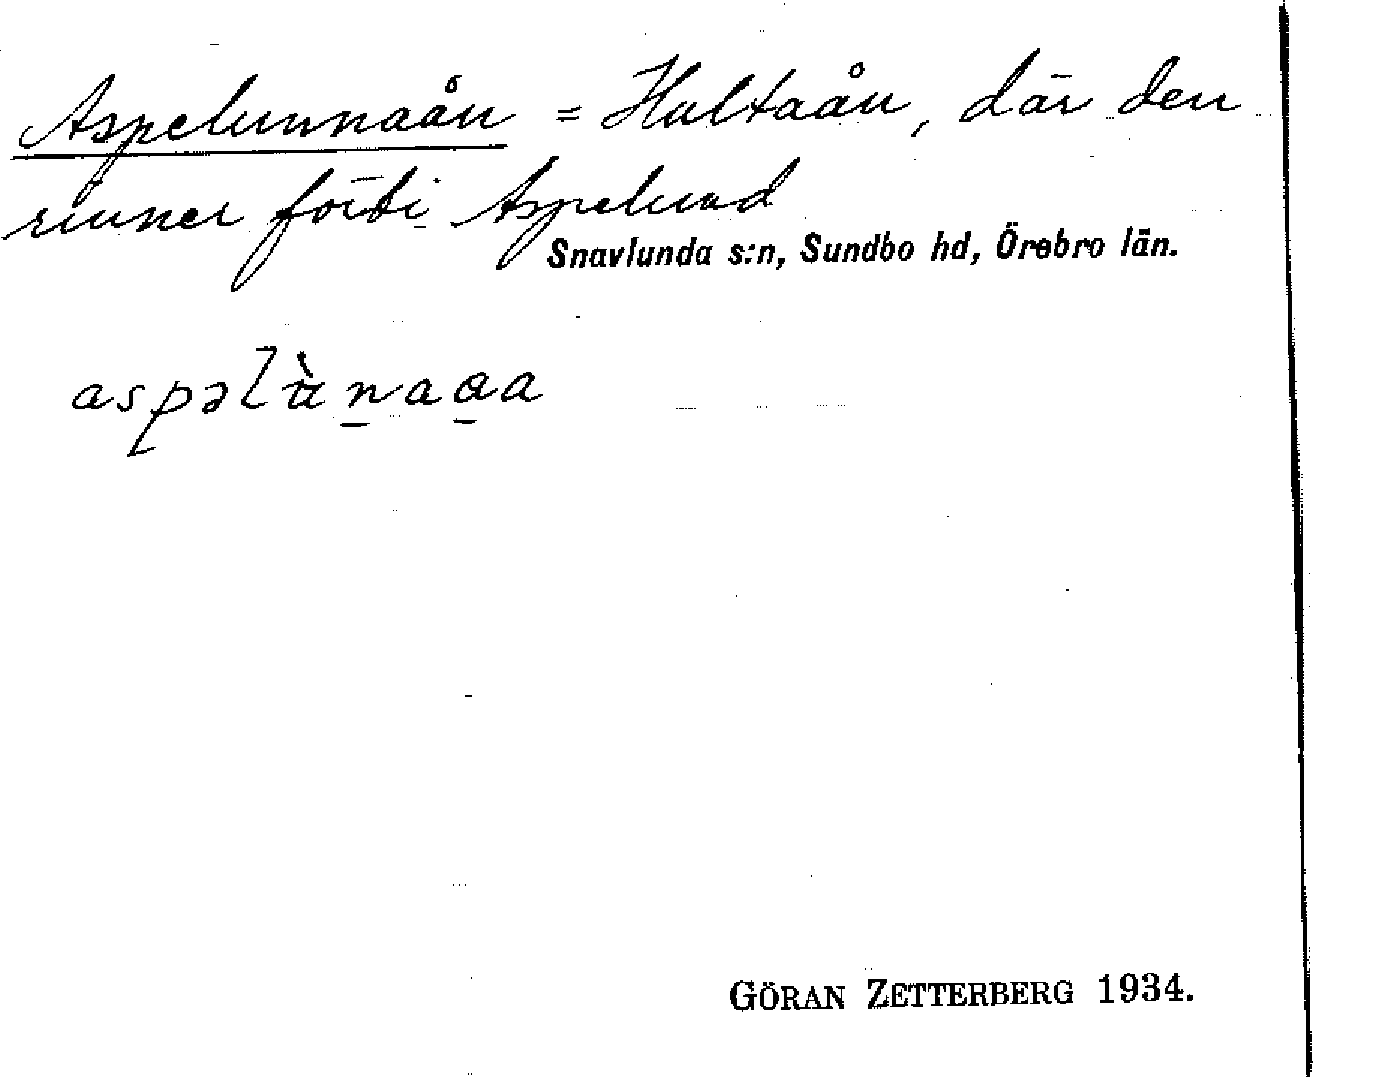 Aspelunnaån = Hultaån, där den
rinner förbi Aspelund
Snavlunda s:n, Sundbo hd, Örebro län.
aspəlùn̠aa̠a
GÖRAN ZETTERBERG 1934.